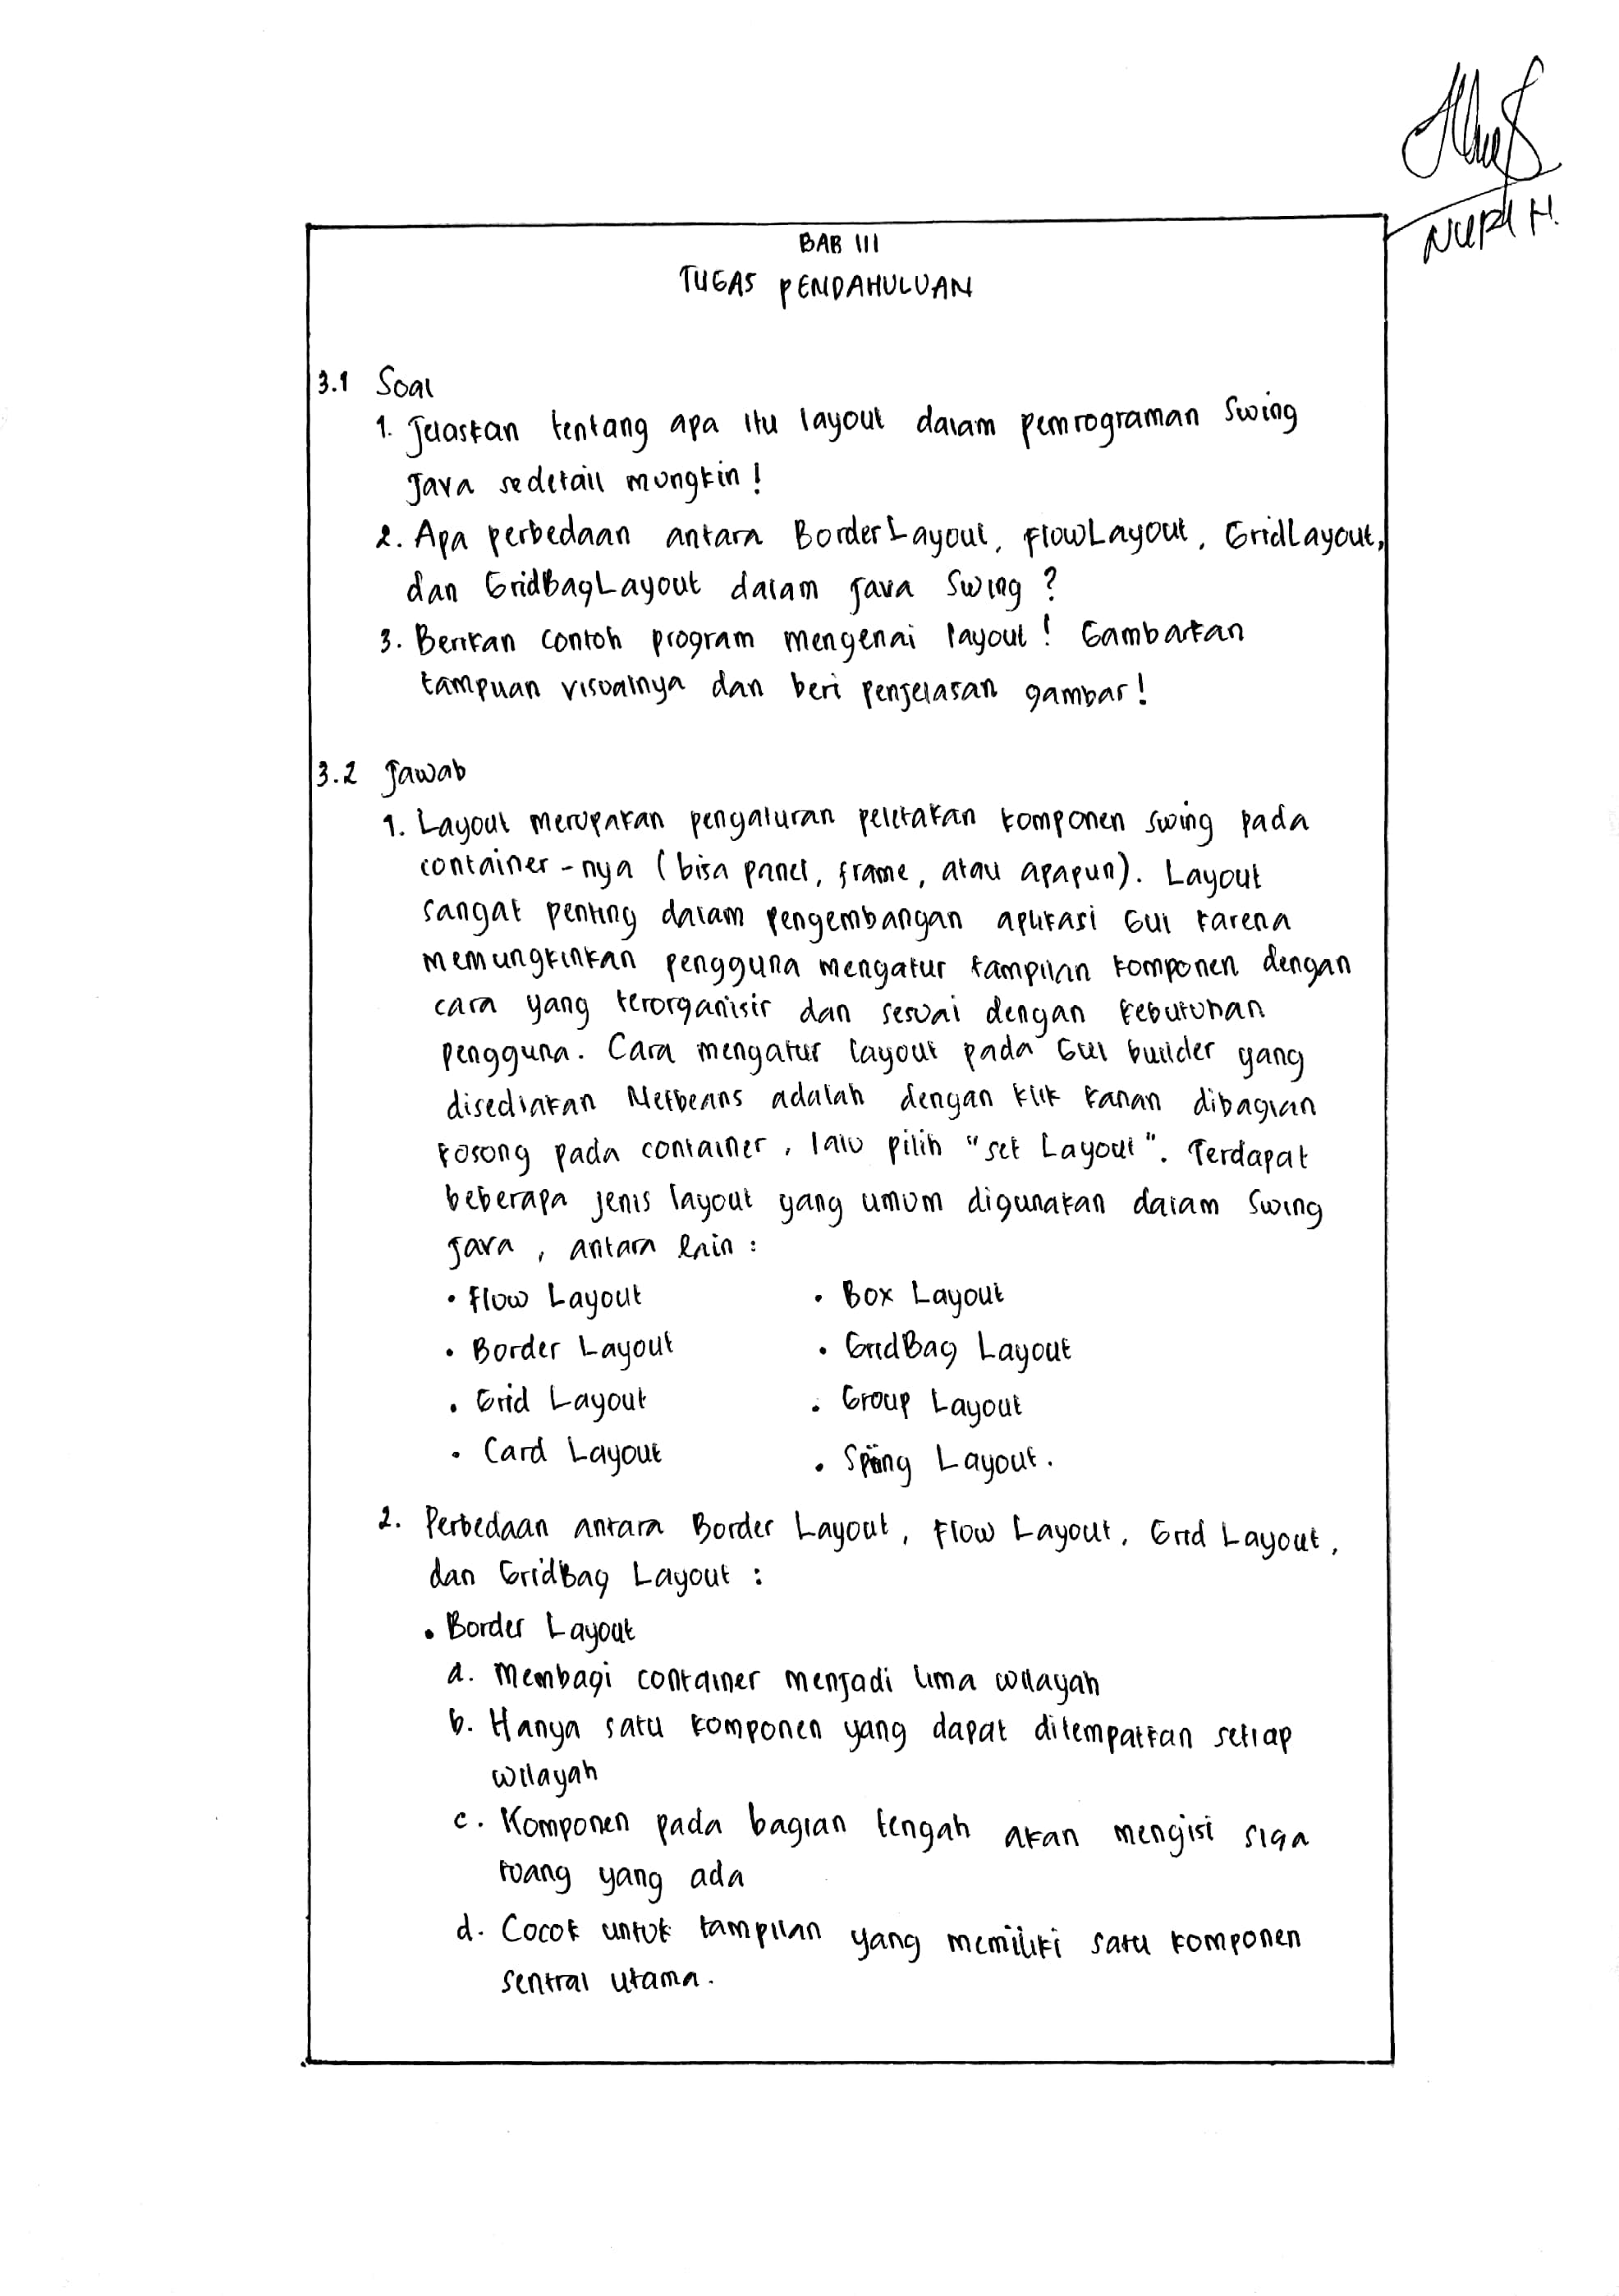 NURI H.
BAB III
TUGAS PENDAHULUAN
3.1 Soal
1. Jelaskan tentang apa itu layout dalam pemrograman Swing
Java sedetail mungkin!
2. Apa perbedaan antara BorderLayout, FlowLayout, GridLayout,
dan GridBagLayout dalam Java Swing?
3. Berikan contoh program mengenai layout! Gambarkan
tampilan visualnya dan beri penjelasan gambar!
3.2 Jawab
1. Layout merupakan pengaturan peletakan komponen swing pada
container-nya (bisa panel, frame, atau apapun). Layout
sangat penting dalam pengembangan aplikasi GUI karena
memungkinkan pengguna mengatur tampilan komponen dengan
cara yang terorganisir dan sesuai dengan kebutuhan
pengguna. Cara mengatur layout pada GUI builder yang
disediakan Netbeans adalah dengan klik kanan dibagian
kosong pada container, lalu pilih "set Layout". Terdapat
beberapa jenis layout yang umum digunakan dalam Swing
Java, antara lain:
• Flow Layout • Box Layout
• Border Layout • GridBag Layout
• Grid Layout • Group Layout
• Card Layout • Spring Layout.
2. Perbedaan antara Border Layout, Flow Layout, Grid Layout,
dan GridBag Layout:
• Border Layout
a. Membagi container menjadi lima wilayah
b. Hanya satu komponen yang dapat ditempatkan setiap
wilayah
c. Komponen pada bagian tengah akan mengisi siqa
ruang yang ada
d. Cocok untuk tampilan yang memiliki satu komponen
sentral utama.